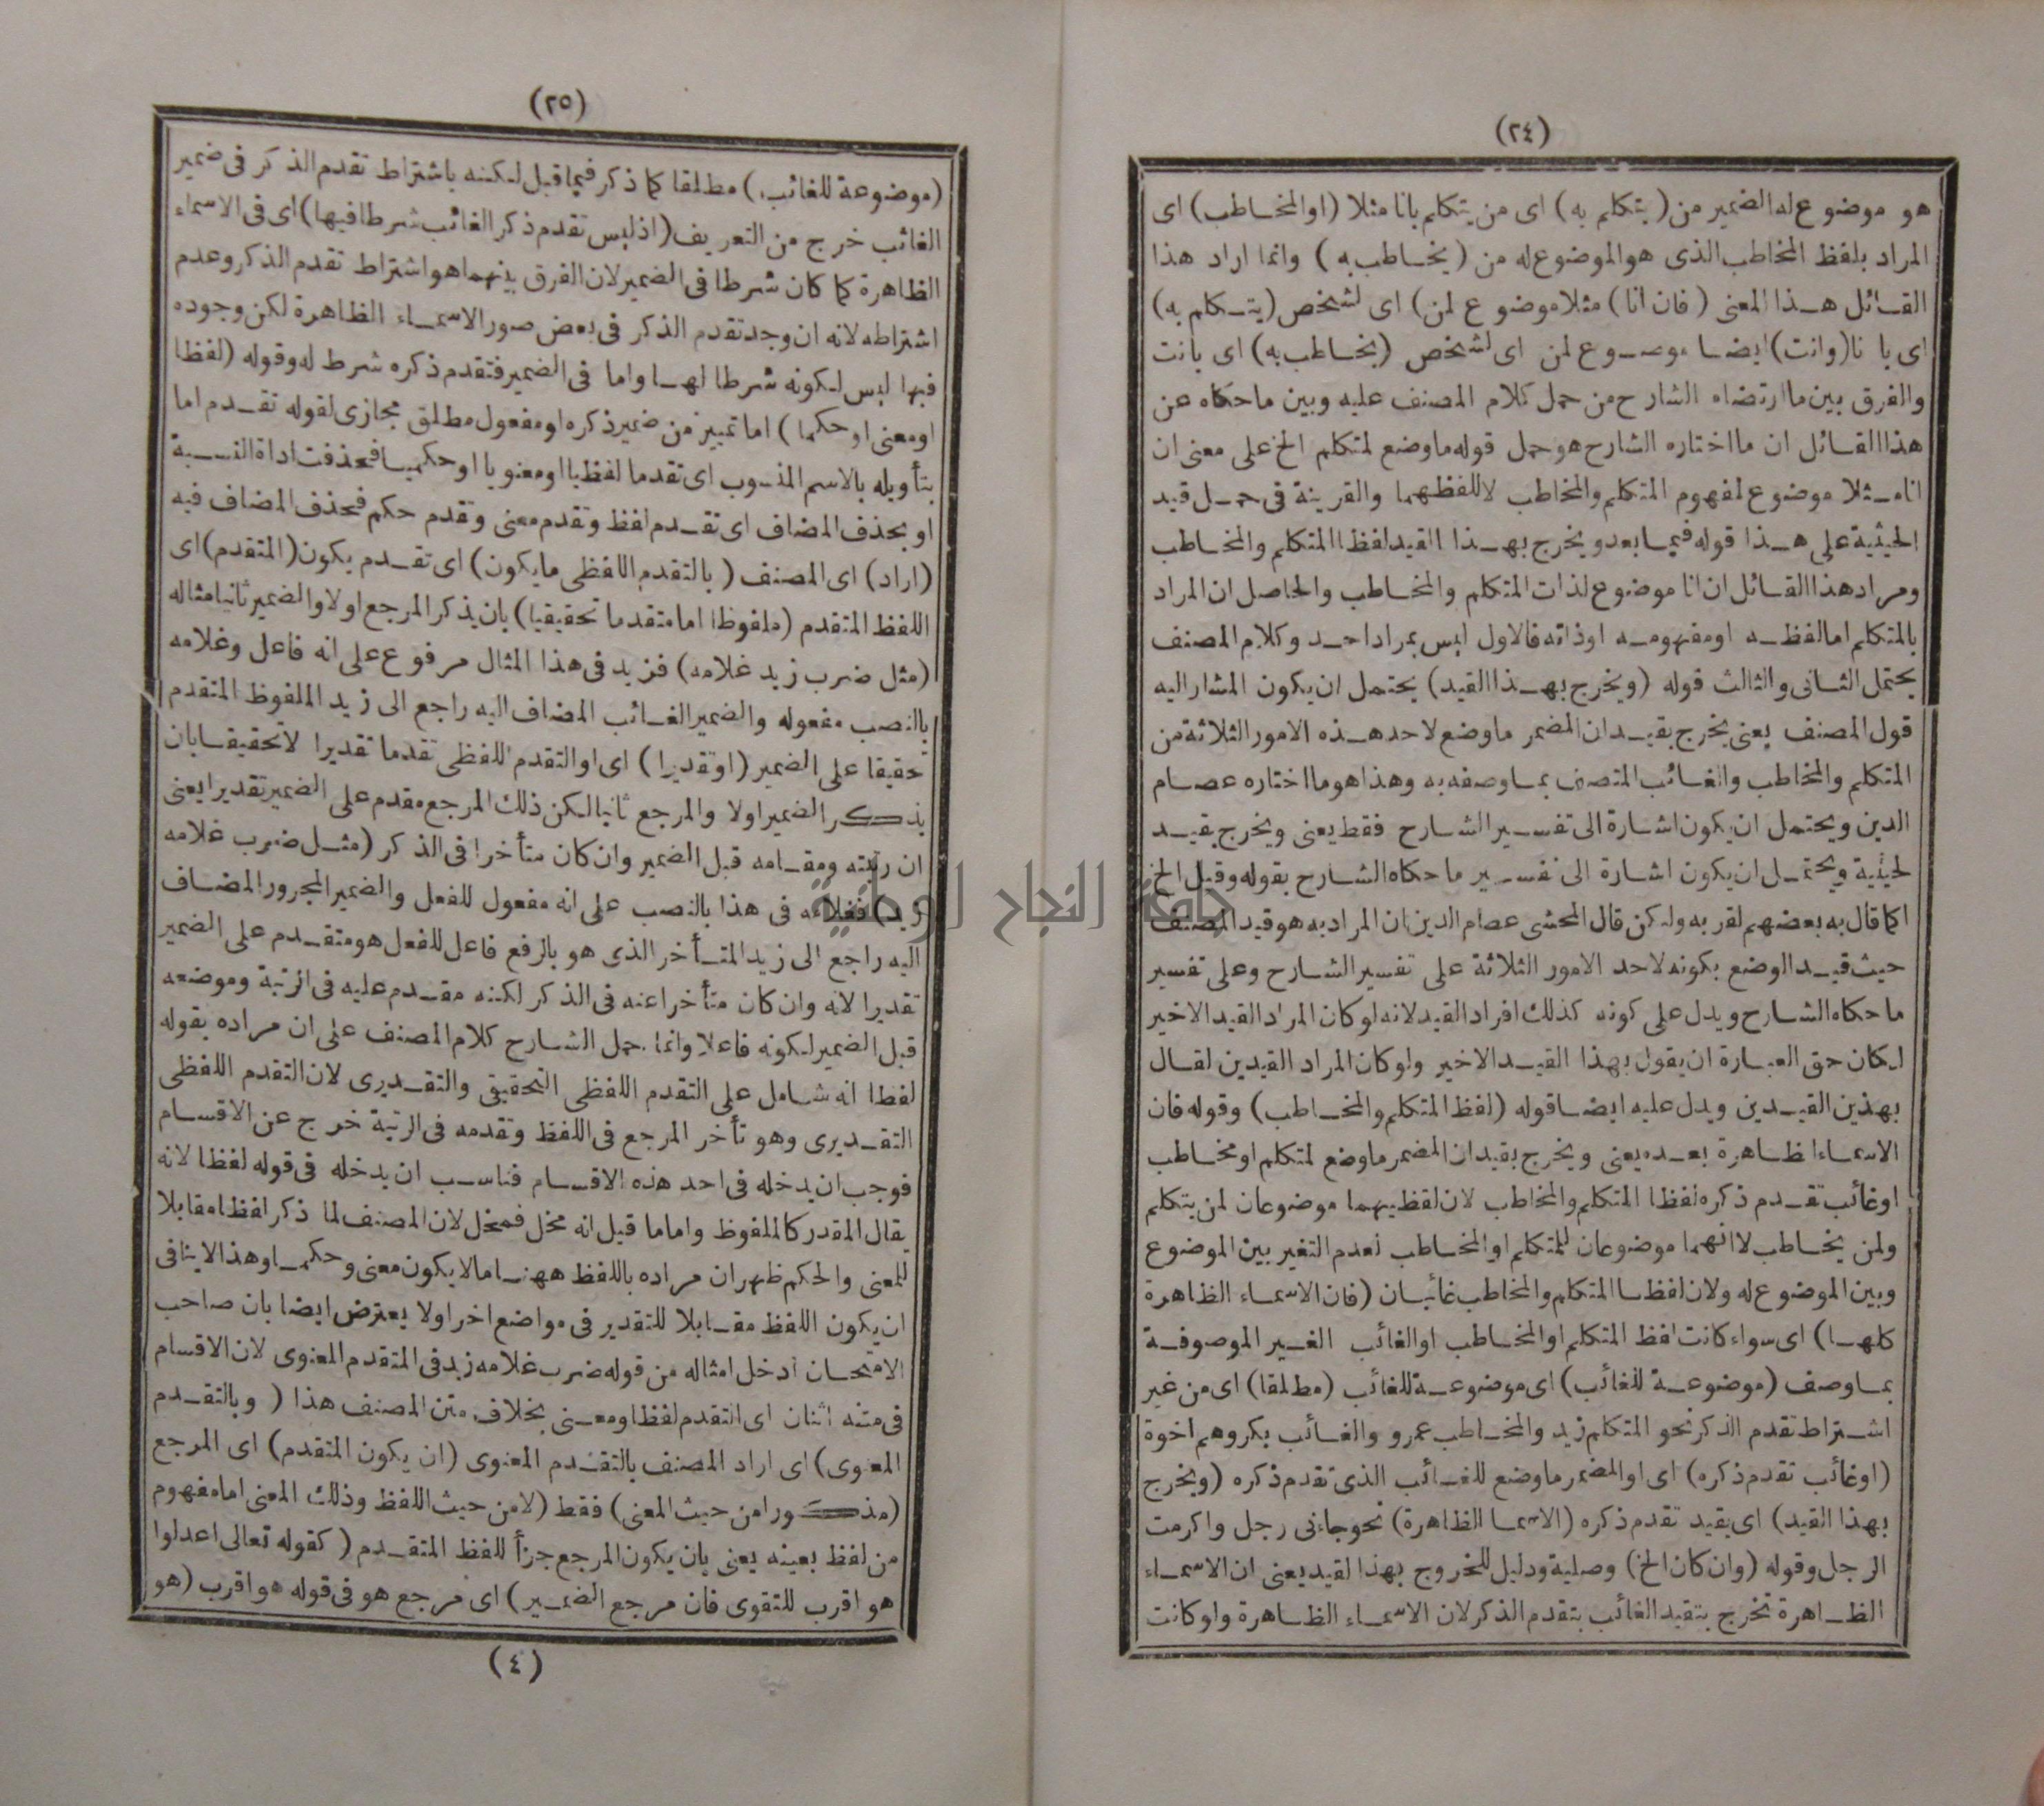 (٢٤)
هو موضوع له الضمير من (يتكلم به) اى من يتكلم بانا مثلا (او المخاطب) اى
المراد بلفظ المخاطب الذى هو الموضوع له من (يخاطب به) وانما اراد هذا
القائل هذا المعنى (فان انا) مثلا موضوع لمن) اى لشخص (يتكلم به)
اى با نا (وانت) ايضا موضوع لمن اى لشخص (يخاطب به) اى بانت
والفرق بين ما ارتضاه الشارح من حمل كلام المصنف عليه وبين ما حكاه عن
هذا القائل ان ما اختاره الشارح هو حمل قوله ما وضع لمتكلم الخ على معنى ان
انا مثلا موضوع لمفهوم المتكلم والمخاطب لا للفظهما والقرينة فى حمل قيد
الحيثية على هذا قوله فيما بعد ويخرج بهذا القيد لفظا المتكلم والمخاطب
ومراد هذا القائل ان انا موضوع لذات المتكلم والمخاطب والحاصل ان المراد
بالمتكلم اما لفظه او مفهومه او ذاته فالاول ليس بمراد احد وكلام المصنف
يحتمل الثانى والثالث قوله (ويخرج بهذا القيد) يحتمل ان يكون المشار اليه
قول المصنف يعنى يخرج بقيد ان المضمر ما وضع لاحد هذه الامور الثلاثة من
المتكلم والمخاطب والغائب المتصف بما وصفه به وهذا هو ما اختاره عصام
الدين ويحتمل ان يكون اشارة الى تفسير الشارح فقط يعنى ويخرج بقيد
لحيثية ويحتمل ان يكون اشارة الى تفسير ما حكاه الشارح بقوله وقيل الخ
كما قال به بعضهم لقربه ولكن قال المحشى عصام الدين ان المراد به هو قيد المصنف
حيث قيد الوضع بكونه لاحد الامور الثلاثة على تفسير الشارح وعلى تفسير
ما حكاه الشارح ويدل على كونه كذلك افراد القيد لانه لو كان المراد القيد الاخير
لكان حق العبارة ان يقول بهذا القيد الاخير ولو كان المراد القيدين لقال
بهذين القيدين ويدل عليه ايضا قوله (لفظ المتكلم والمخاطب) وقوله فان
الاسماء الظاهرة بعده يعنى ويخرج بقيد ان المضمر ما وضع لمتكلم او مخاطب
او غائب تقدم ذكره لفظا المتكلم والمخاطب لان لفظيهما موضوعان لمن يتكلم
ولمن يخاطب لا انهما موضوعان للمتكلم او المخاطب لعدم التغير بين الموضوع
وبين الموضوع له ولان لفظا المتكلم والمخاطب غائبان (فان الاسماء الظاهرة
كلها) اى سواء كانت لفظ المتكلم او المخاطب او الغائب الغير الموصوفة
بما وصف (موضوعة للغائب) اى موضوعة للغائب (مطلقا) اى من غير
اشتراط تقدم الذكر نحو المتكلم زيد والمخاطب عمرو والغائب بكر وهم اخوة
(او غائب تقدم ذكره) اى او المضمر ما وضع للغائب الذى تقدم ذكره (ويخرج
بهذا القيد) اى بقيد تقدم ذكره (الاسما الظاهرة) نحو جاءنى رجل واكرمت
الرجل وقوله (وان كان الخ) وصلية ودليل للخروج بهذا القيد يعنى ان الاسماء
الظاهرة تخرج بتقييد الغائب بتقدم الذكر لان الاسماء الظاهرة ولو كانت
(٢٥)
(موضوعة للغائب) مطلقا كما ذكر فيما قبل لكنه باشتراط تقدم الذكر فى ضمير
الغائب خرج من التعريف (اذ ليس تقدم ذكر الغائب شرطا فيها) اى فى الاسماء
الظاهرة كما كان شرطا فى الضمير لان الفرق بينهما هو اشتراط تقدم الذكر وعدم
اشتراطه لانه ان وجد تقدم الذكر فى بعض صور الاسماء الظاهرة لكن وجوده
فيها ليس لكونه شرطا لها واما فى الضمير فتقدم ذكره شرط له وقوله (لفظا
او معنى او حكما) اما تمييز من ضمير ذكره او مفعول مطلق مجازى لقوله تقدم اما
بتأويله بالاسم المنسوب اى تقدما لفظيا او معنويا او حكميا فحذفت اداة النسبة
او بحذف المضاف اى تقدم لفظ وتقدم معنى وتقدم حكم فحذف المضاف فيه
(اراد) اى المصنف (بالتقدم اللفظى ما يكون) اى تقدم يكون (المتقدم) اى
اللفظ المتقدم (ملفوظا اما متقدما تحقيقيا) بان يذكر المرجع اولا والضمير ثانيا مثاله
(مثل ضرب زيد غلامه) فزيد فى هذا المثال مرفوع على انه فاعل وغلامه
بالنصب مفعوله والضمير الغائب المضاف اليه راجع الى زيد الملفوظ المتقدم
تحقيقا على الضمير (او تقديرا) اى او التقدم اللفظى تقدما تقديرا لا تحقيقا بان
يذكر الضمير اولا والمرجع ثانيا لكن ذلك المرجع مقدم على الضمير تقديرا يعنى
ان رتبته ومقامه قبل الضمير وان كان متأخرا فى الذكر (مثل ضرب غلامه
زيد) فغلامه فى هذا بالنصب على انه مفعول للفعل والضمير المجرور المضاف
اليه راجع الى زيد المتأخر الذى هو بالرفع فاعل للفعل هو متقدم على الضمير
تقديرا لانه وان كان متأخرا عنه فى الذكر لكنه مقدم عليه فى الرتبة وموضعه
قبل الضمير لكونه فاعلا وانما حمل الشارح كلام المصنف على ان مراده بقوله
لفظا انه شامل على التقدم اللفظى التحقيقى والتقديرى لان التقدم اللفظى
التقديرى وهو تأخر المرجع فى اللفظ وتقدمه فى الرتبة خرج عن الاقسام
فوجب ان يدخله فى احد هذه الاقسام فناسب ان يدخله فى قوله لفظا لانه
يقال المقدر كالملفوظ واما ما قيل انه مخل فمخل لان المصنف لما ذكر لفظا مقابلا
للمعنى والحكم ظهر ان مراده باللفظ ههنا ما لا يكون معنى وحكما وهذا لا ينافى
ان يكون اللفظ مقابلا للتقدير فى مواضع اخر ولا يعترض ايضا بان صاحب
الامتحان ادخل امثاله من قوله ضرب غلامه زيد فى المتقدم المعنوى لان الاقسام
فى متنه اثنان اى التقدم لفظا ومعنى بخلاف متن المصنف هذا (وبالتقدم
المعنوى) اى اراد المصنف بالتقدم المعنوى (ان يكون المتقدم) اى المرجع
(مذكورا من حيث المعنى) فقط (لا من حيث اللفظ وذلك المعنى اما مفهوم
من لفظ بعينه يعنى بان يكون المرجع جزأ للفظ المتقدم (كقوله تعالى اعدلوا
هو اقرب للتقوى فان مرجع الضمير) اى مرجع هو فى قوله هو اقرب (هو
(٤)
جامعة النجاح الوطنية